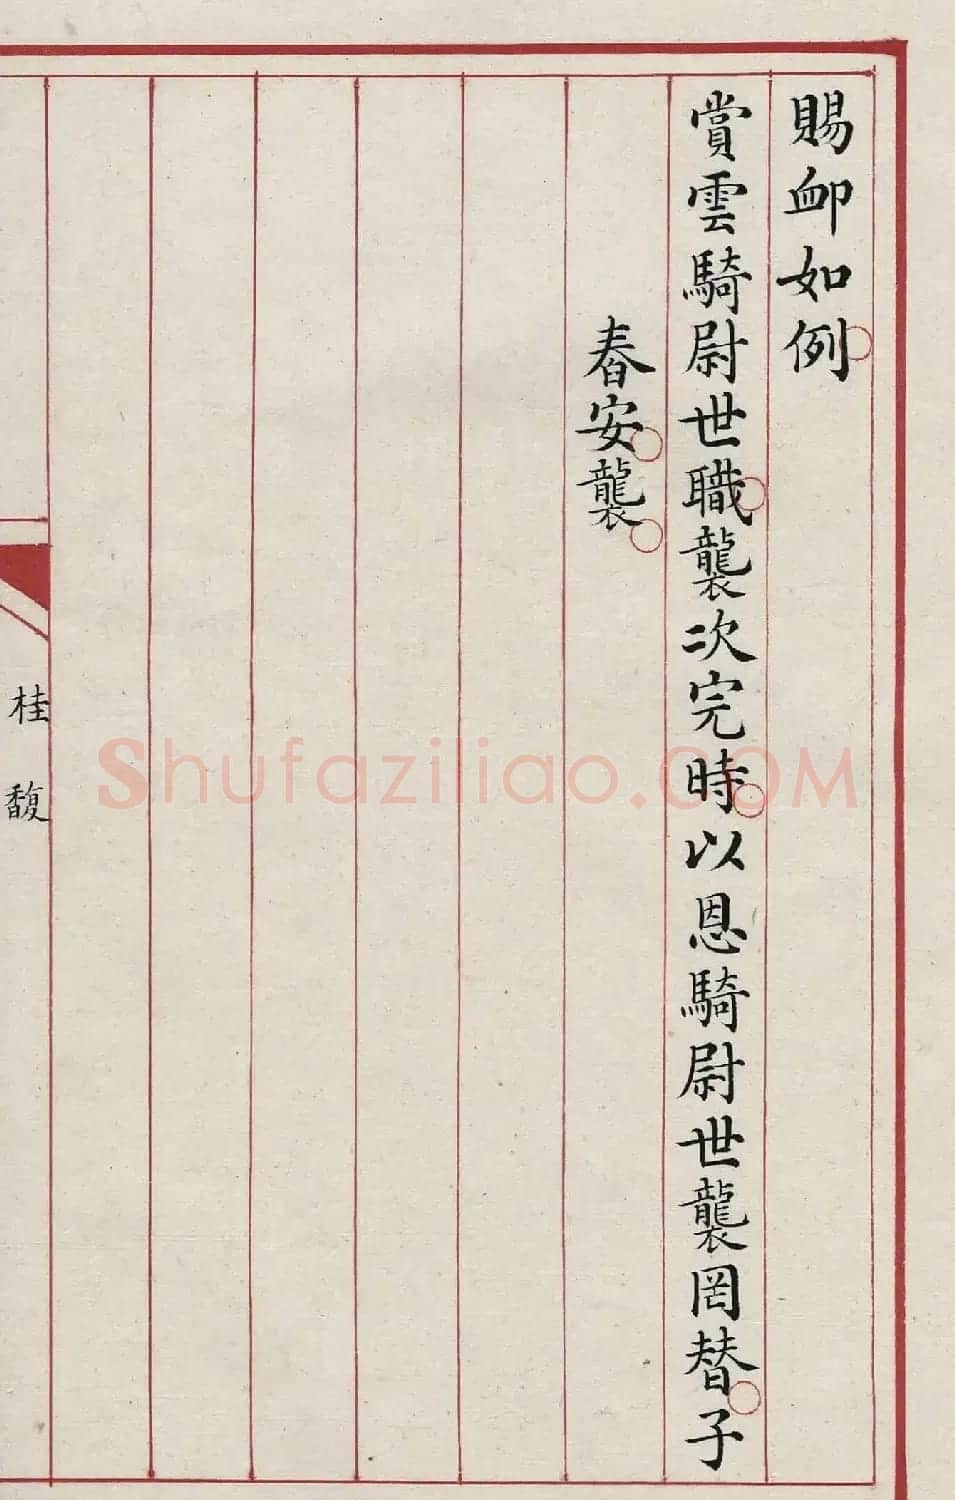 賜卹如例
賞雲騎尉世職襲次完時以恩騎尉世襲罔替子
春安襲
桂馥
Shufaziliao.COM